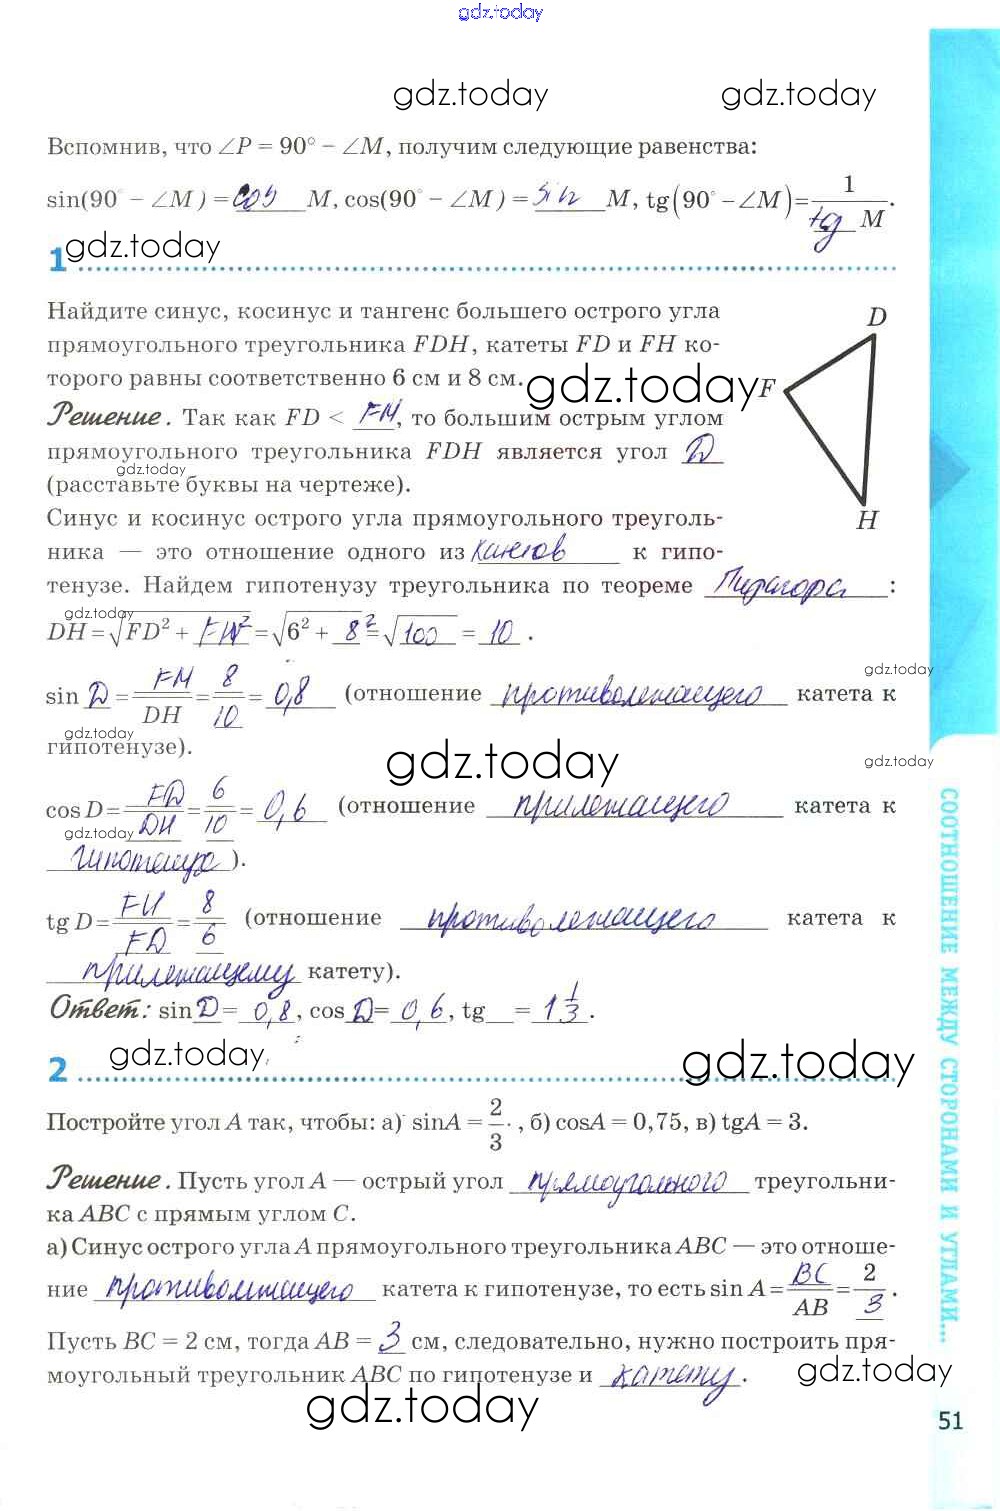 gdz.today
gdz.today gdz.today
Вспомнив, что ∠P = 90° − ∠M, получим следующие равенства:
sin(90° − ∠M) = cos M, cos(90° − ∠M) = sin M, tg(90° − ∠M) = 1 / tg M.
gdz.today
1
Найдите синус, косинус и тангенс большего острого угла
прямоугольного треугольника FDH, катеты FD и FH ко-
торого равны соответственно 6 см и 8 см.
gdz.today
D
F
H
Решение. Так как FD < FH, то большим острым углом
прямоугольного треугольника FDH является угол D
gdz.today
(расставьте буквы на чертеже).
Синус и косинус острого угла прямоугольного треуголь-
ника — это отношение одного из катетов к гипо-
тенузе. Найдем гипотенузу треугольника по теореме Пифагора :
gdz.today
DH = √FD² + FH² = √6² + 8² = √100 = 10 .
gdz.today
sin D = FH / DH = 8 / 10 = 0,8 (отношение противолежащего катета к
gdz.today
гипотенузе).
gdz.today gdz.today
cos D = FD / DH = 6 / 10 = 0,6 (отношение прилежащего катета к
gdz.today
гипотенузе).
tg D = FH / FD = 8 / 6 (отношение противолежащего катета к
прилежащему катету).
Ответ: sin D = 0,8, cos D = 0,6, tg = 1 1/3.
gdz.today gdz.today
2
Постройте угол A так, чтобы: а) sinA = 2/3, б) cosA = 0,75, в) tgA = 3.
Решение. Пусть угол A — острый угол прямоугольного треугольни-
ка ABC с прямым углом C.
а) Синус острого угла A прямоугольного треугольника ABC — это отноше-
ние противолежащего катета к гипотенузе, то есть sin A = BC / AB = 2 / 3 .
Пусть BC = 2 см, тогда AB = 3 см, следовательно, нужно построить пря-
моугольный треугольник ABC по гипотенузе и катету.
gdz.today
gdz.today
СООТНОШЕНИЕ МЕЖДУ СТОРОНАМИ И УГЛАМИ...
51